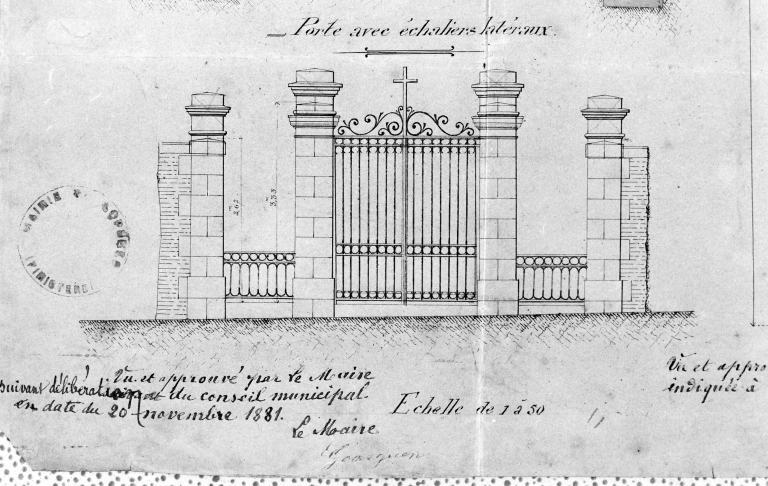 Porte avec échaliers latéraux.
2,62
3,33
MAIRIE
(FINISTÈRE)
Vu et approuvé par Le Maire
suivant délibération du conseil municipal
en date du 20 novembre 1881.
Echelle de 1 à 50
Le Maire
Vu et appro
indiquée à